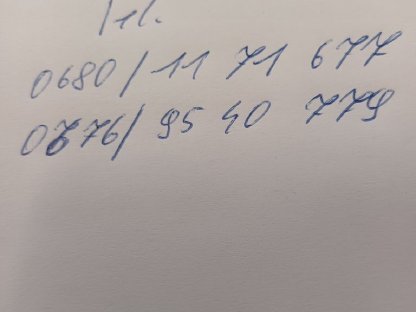 Tel.
0680/11 71 677
0676/95 40 779